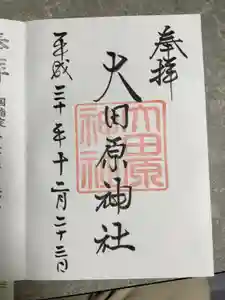 奉拝
大田原神社
大田原神社
平成三十年十二月二十三日